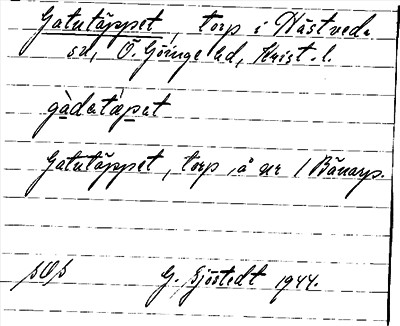 Gatutäppet, torp i Hästveda
sn, Ö. Göinge hd, Krist. l.
gàdatæpet
Gatutäppet, torp, å nr 1 Bänarp.
G. Sjöstedt 1944.